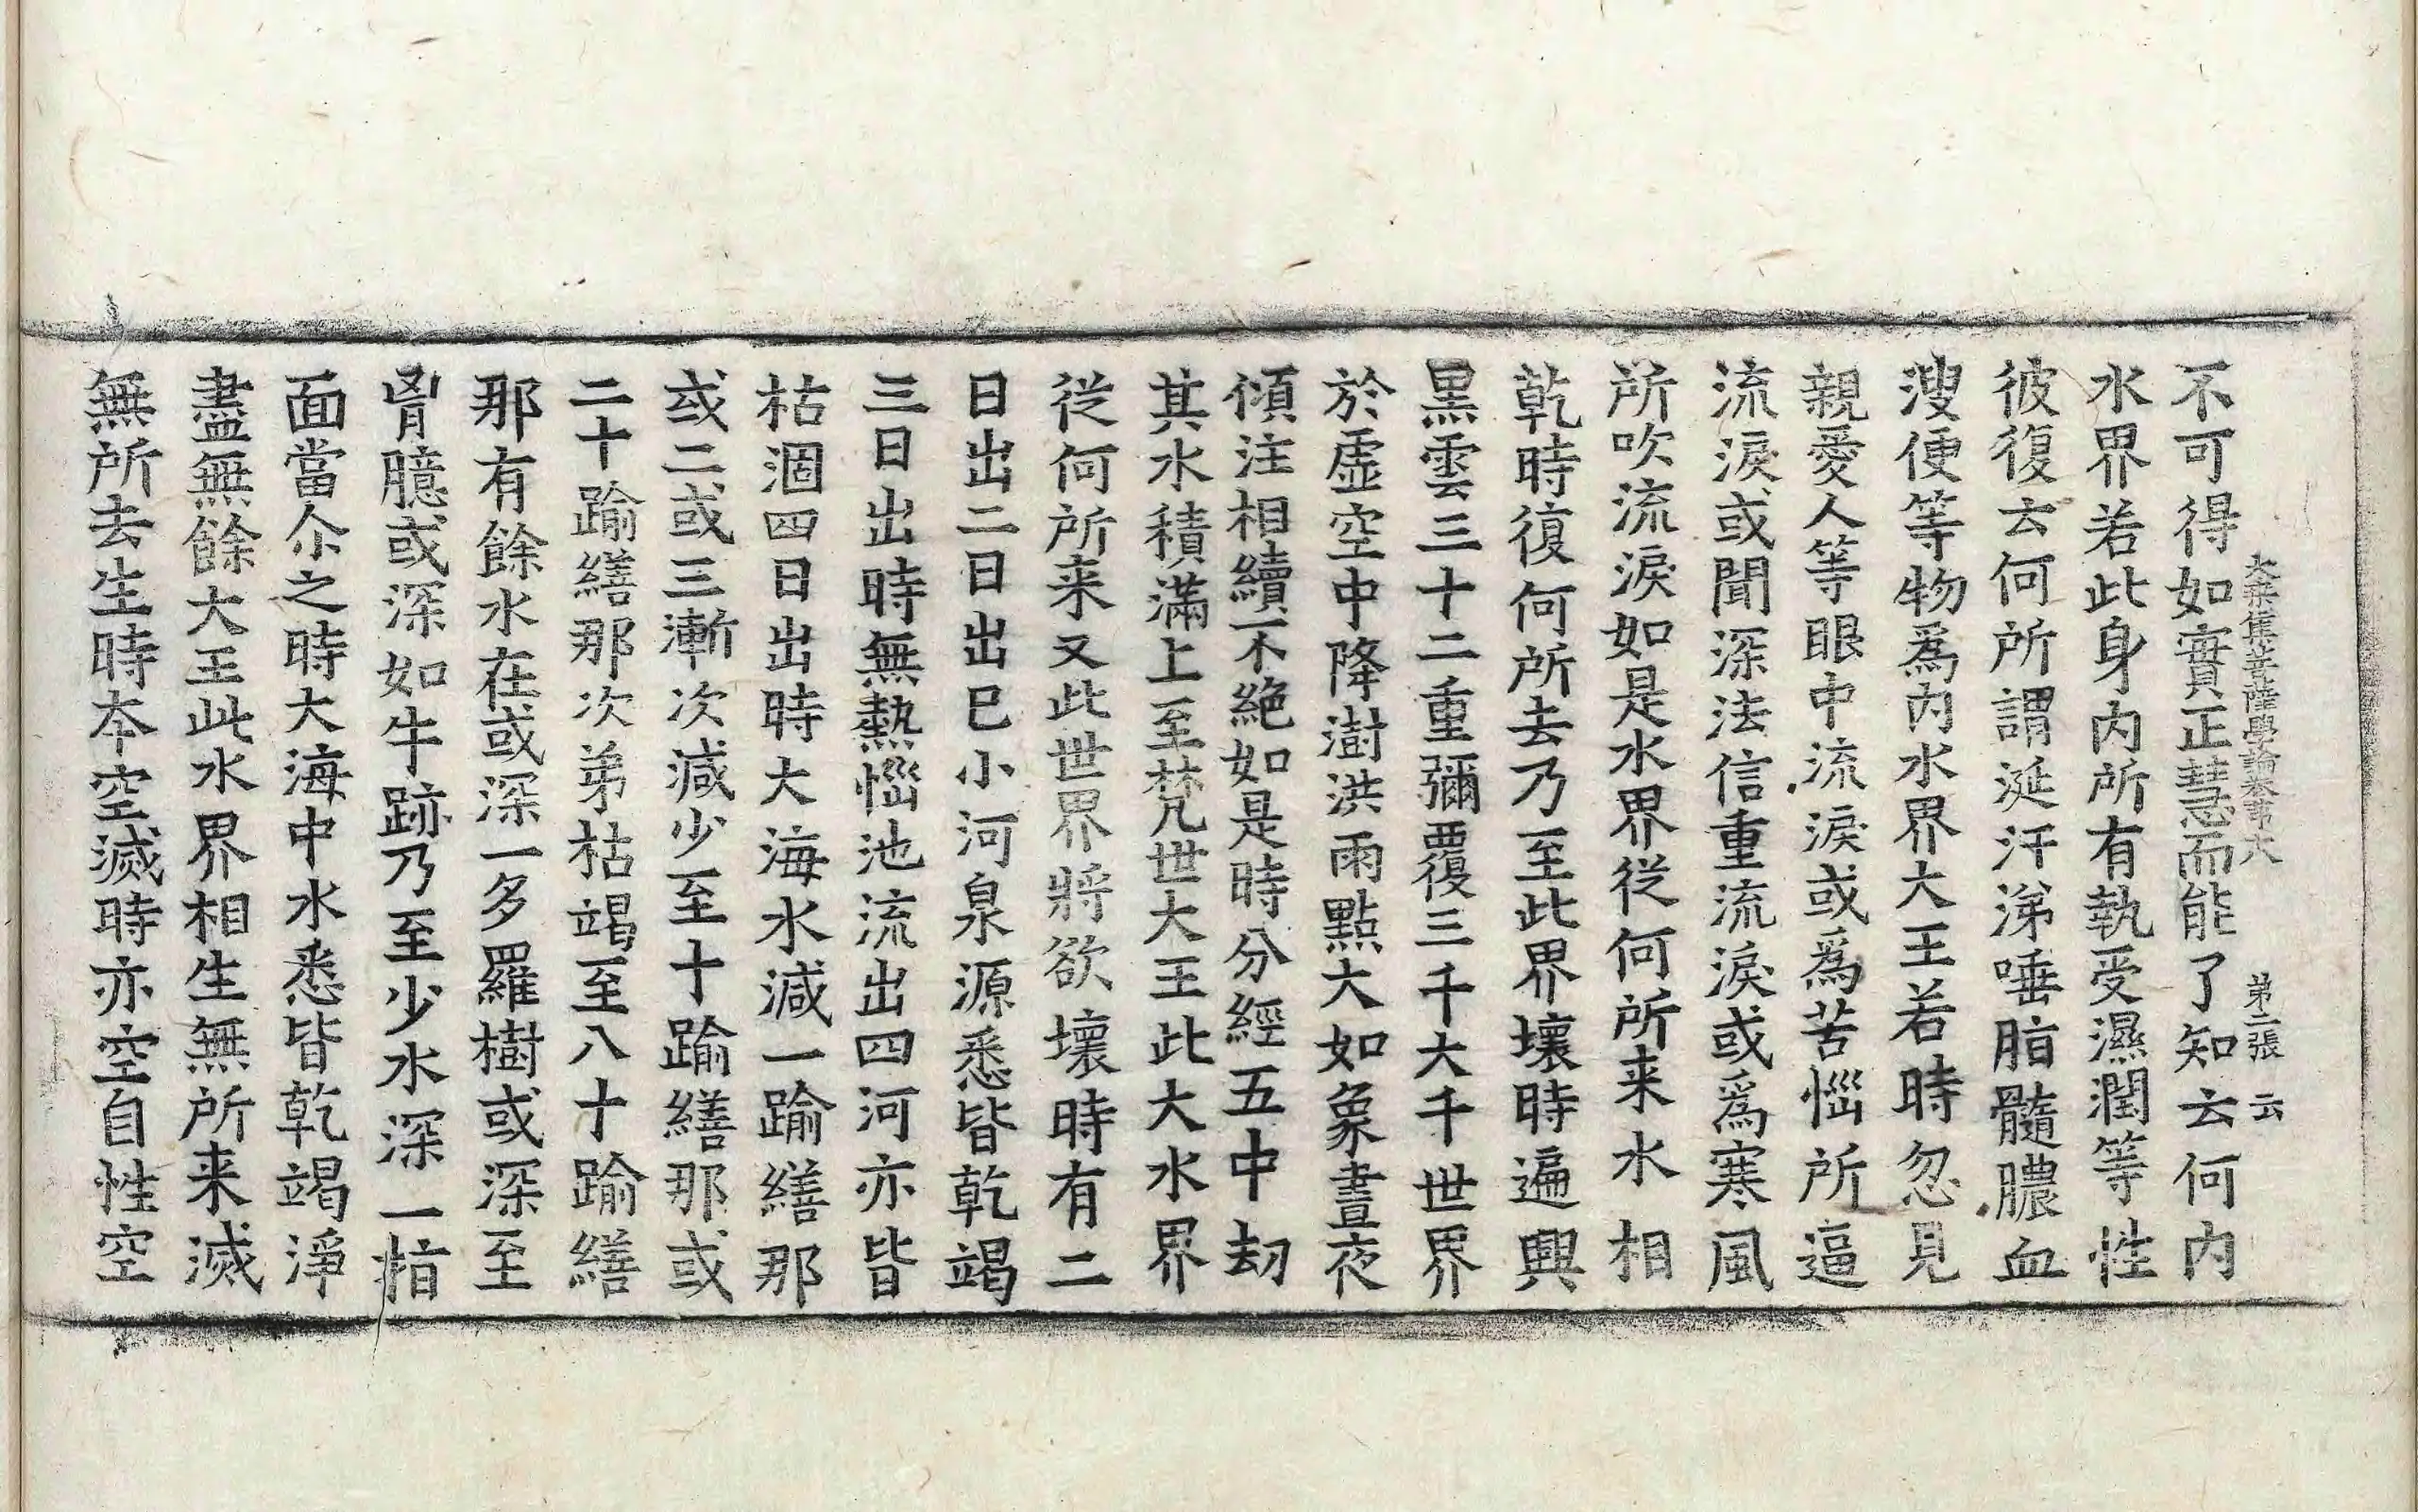 大乗集菩薩學論卷苐十八 苐二張 云
不可得如實正慧而能了知云何内
水界若此身内所有執受濕潤等性
彼復云何所謂涎汗涕唾脂髓膿血
溲便等物爲内水界大王若時忽見
親愛人等眼中流淚或爲苦惱所逼
流淚或聞深法信重流淚或爲寒風
所吹流淚如是水界従何所来水相
乾時復何所去乃至此界壞時遍興
黒雲三十二重彌覆三千大千世界
於虛空中降澍洪雨點大如象晝夜
傾注相續不絶如是時分經五中刼
其水積滿上至梵世大王此大水界
従何所来又此世界將欲壞時有二
日出二日出巳小河泉源悉皆乾竭
三日出時無熱惱池流出四河亦皆
枯涸四日出時大海水減一踰繕那
或二或三漸次減少至十踰繕那或
二十踰繕那次苐枯竭至八十踰繕
那有餘水在或深一多羅樹或深至
胷臆或深如牛跡乃至少水深一指
面當尒之時大海中水悉皆乾竭淨
盡無餘大王此水界相生無所来滅
無所去生時本空滅時亦空自性空